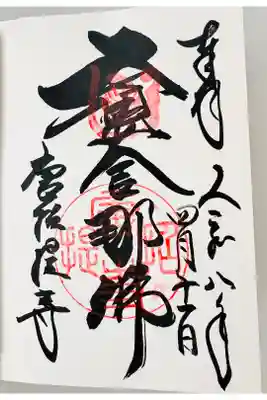 奉拝 令和八年
四月十一日
盧舎那佛
唐招提寺